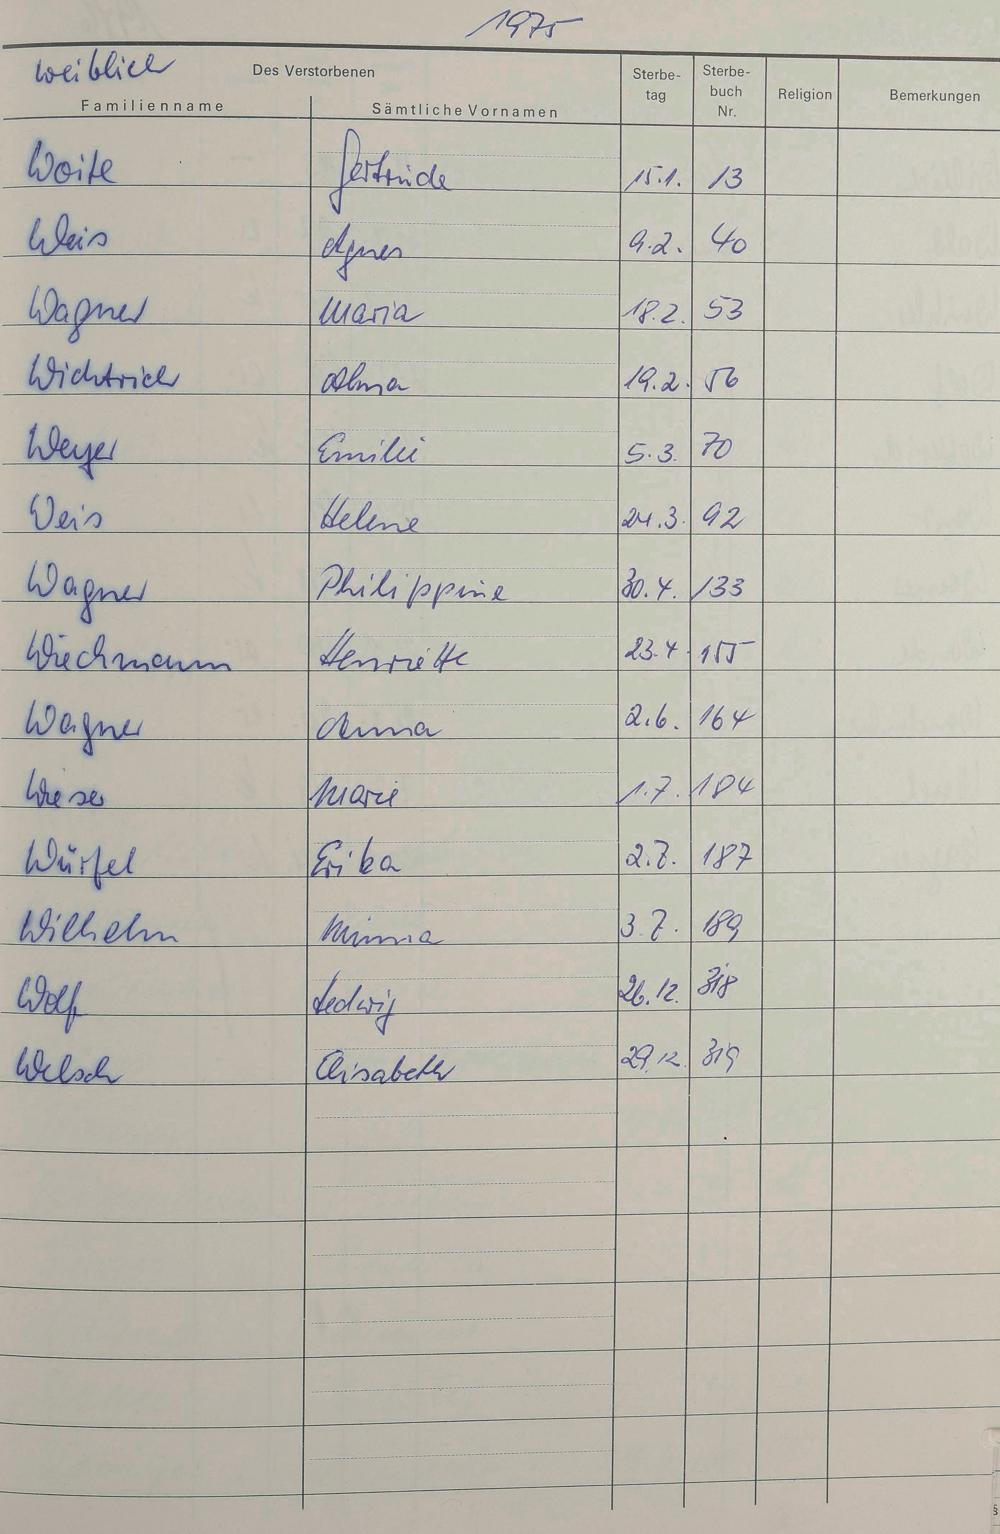 1975
weiblich
Des Verstorbenen
Familienname Sämtliche Vornamen Sterbe-tag Sterbe-buch Nr. Religion Bemerkungen
Woite Gertrude 15.1. 13
Weis Agnes 9.2. 40
Wagner Maria 18.2. 53
Wichtrich Alma 19.2. 56
Weyer Emilie 5.3. 70
Weis Helene 24.3. 92
Wagner Philippine 30.4. 133
Wiechmann Henriette 23.4. 155
Wagner Anna 2.6. 164
Wieser Marie 1.7. 184
Würfel Erika 2.7. 187
Wilhelm Minna 3.7. 189
Wolf Hedwig 26.12. 318
Welsch Elisabeth 29.12. 319